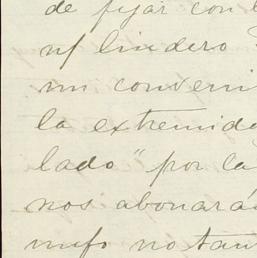 de fijar con l
nf lindero
un conveni
la extremida
lado" por la
nos abonará
nufo no tan